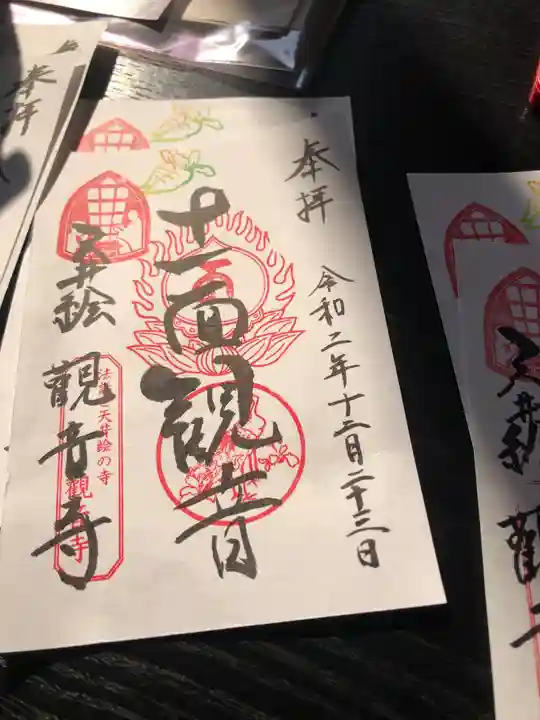 奉拝
令和二年十二月二十三日
十一面観音
天井絵
觀音寺
法竜 天井絵の寺
觀音寺
奉拝
天井絵
觀